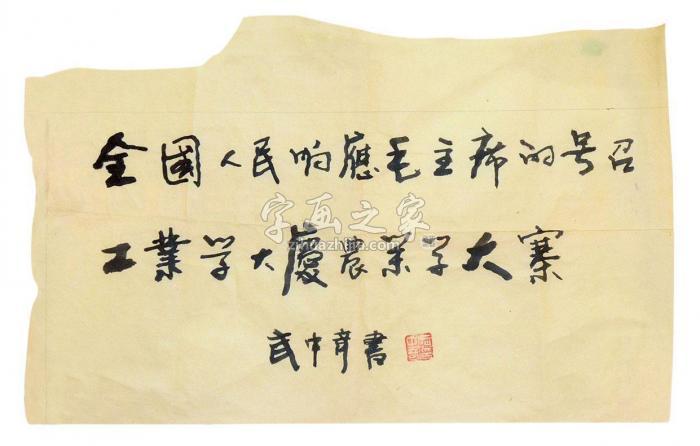 全國人民响應毛主席的号召
工業学大慶農業学大寨
武中奇書
字画之家
zihuazhijia.com